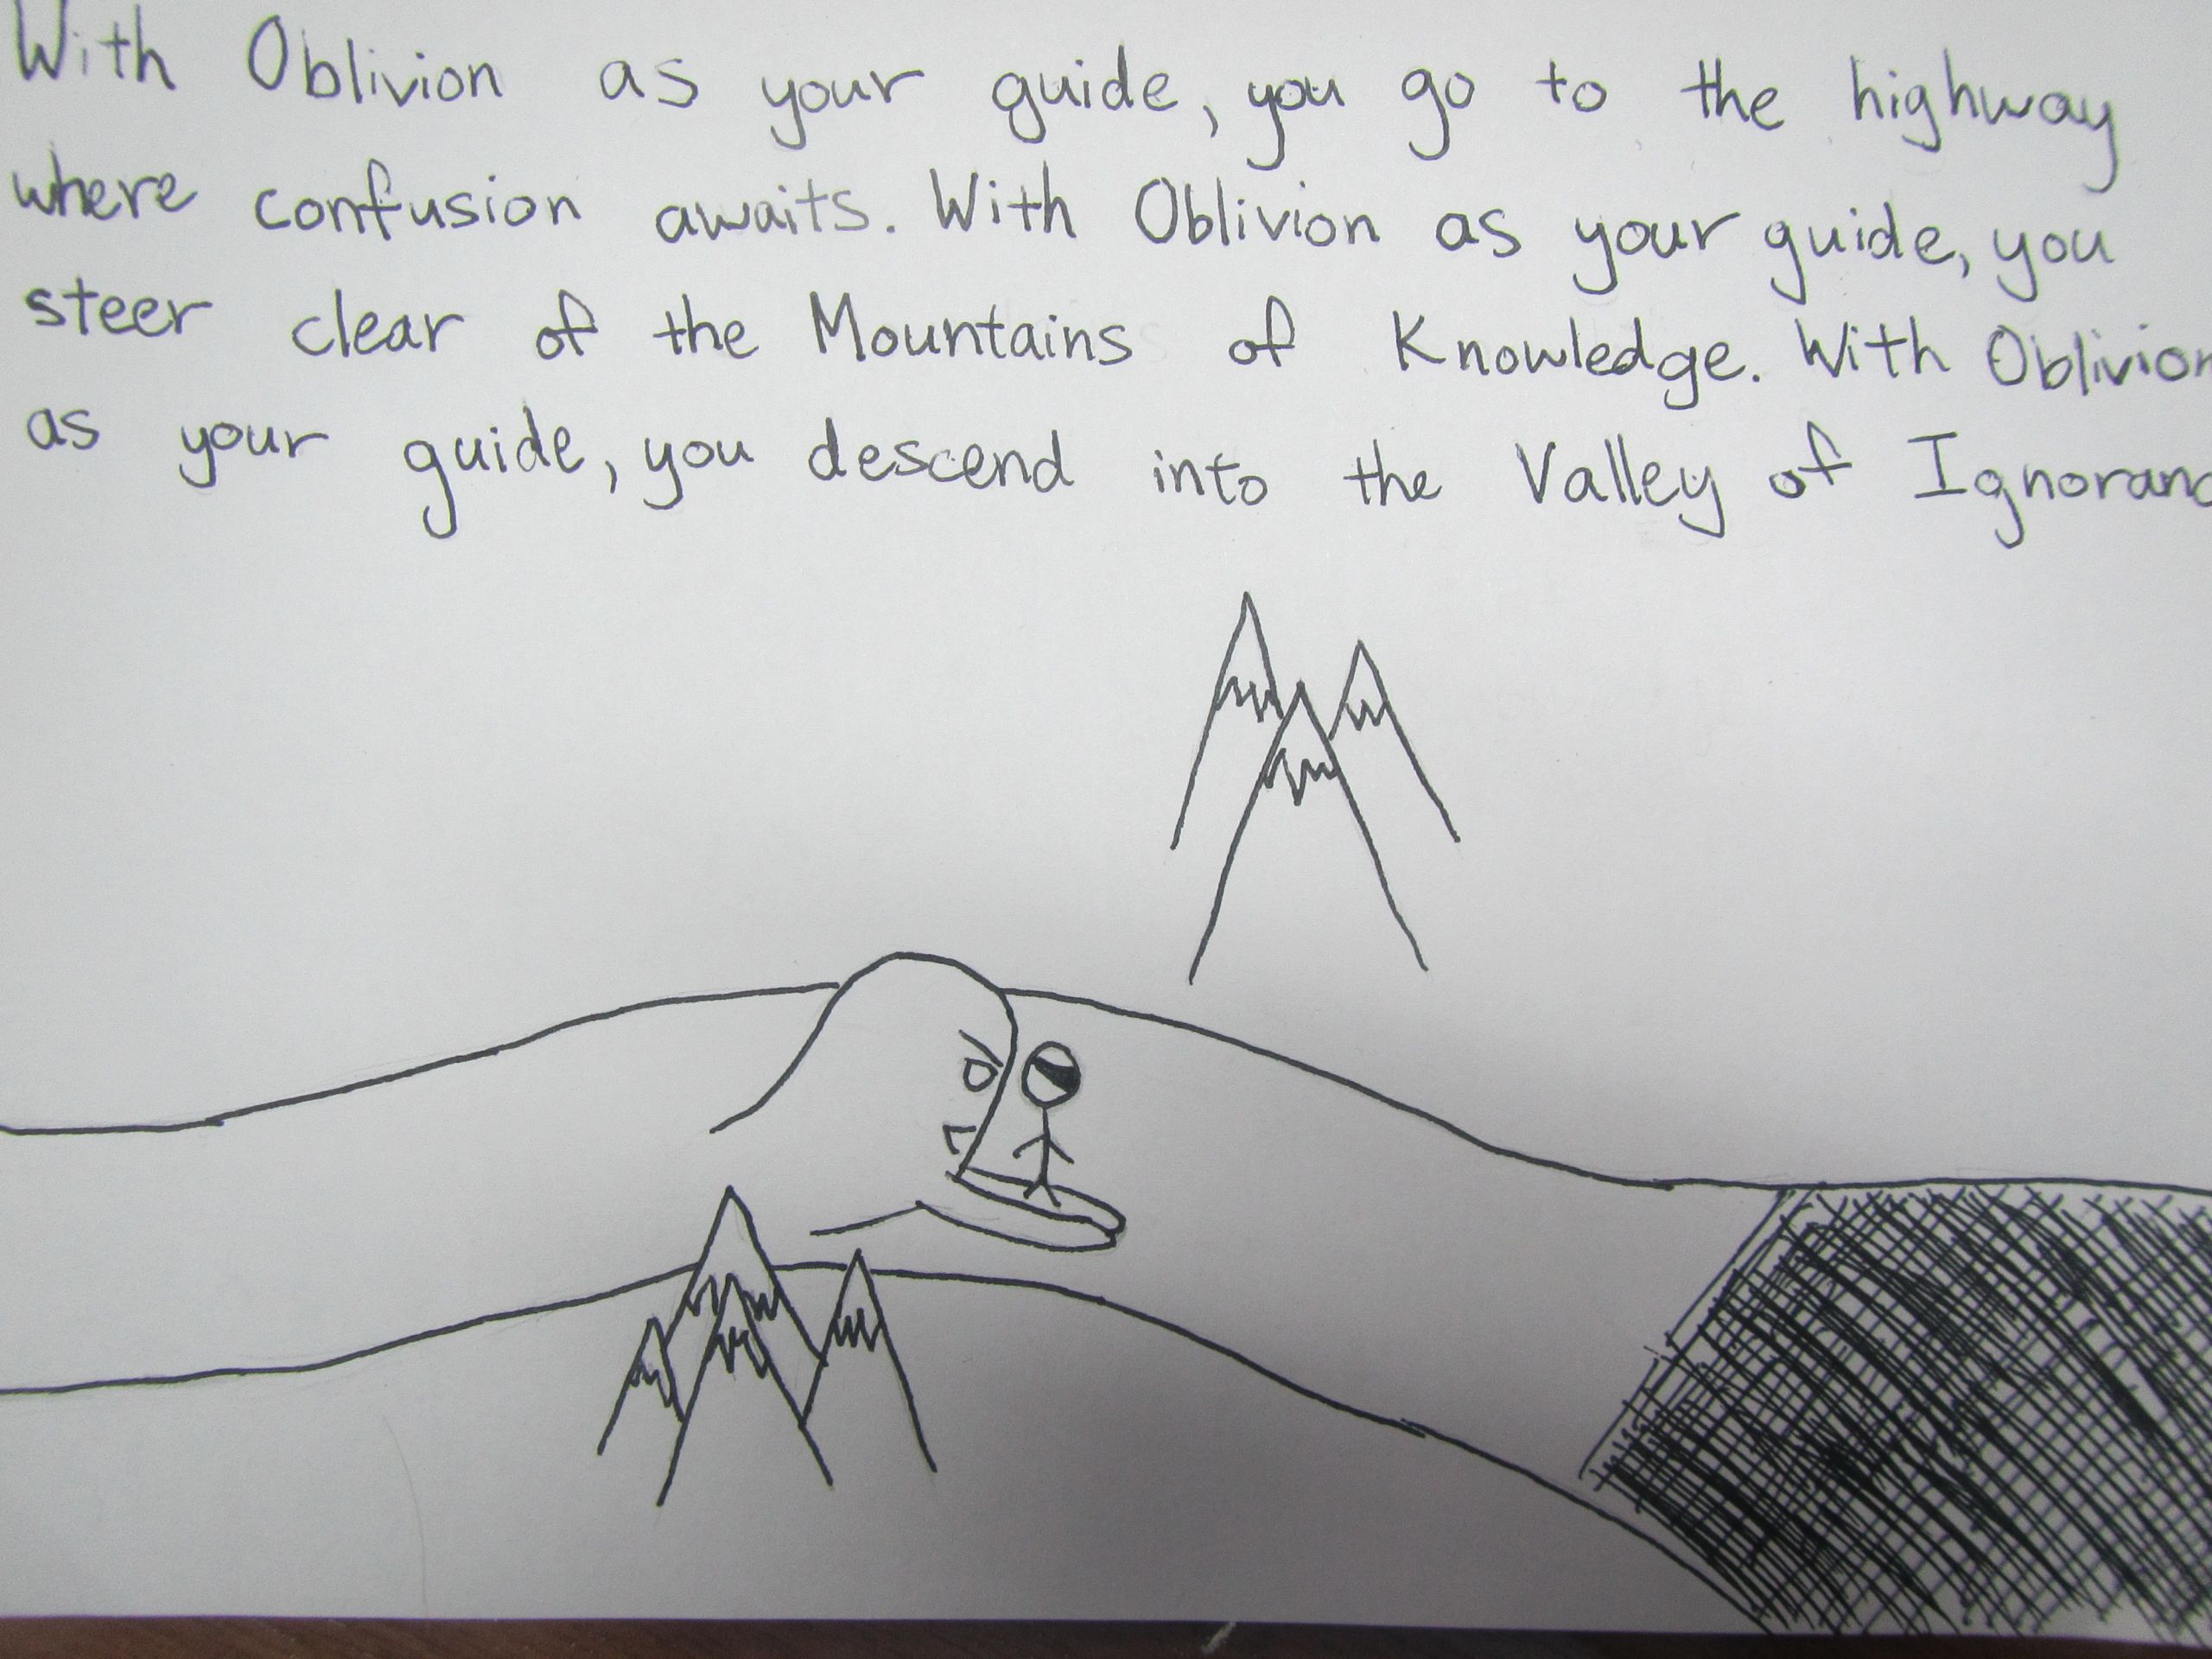 With Oblivion as your guide, you go to the highway
where confusion awaits. With Oblivion as your guide, you
steer clear of the Mountains of Knowledge. With Oblivion
as your guide, you descend into the Valley of Ignoranc